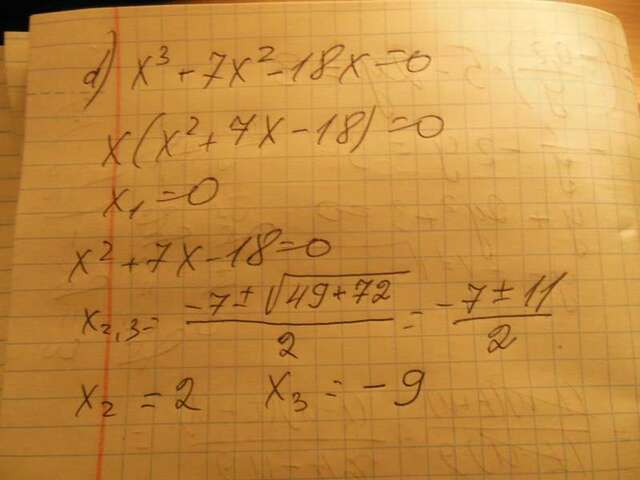 d) x³ + 7x² - 18x = 0
x(x² + 7x - 18) = 0
x₁ = 0
x² + 7x - 18 = 0
x₂,₃ = (-7 ± √(49 + 72))/2 = (-7 ± 11)/2
x₂ = 2 x₃ = -9